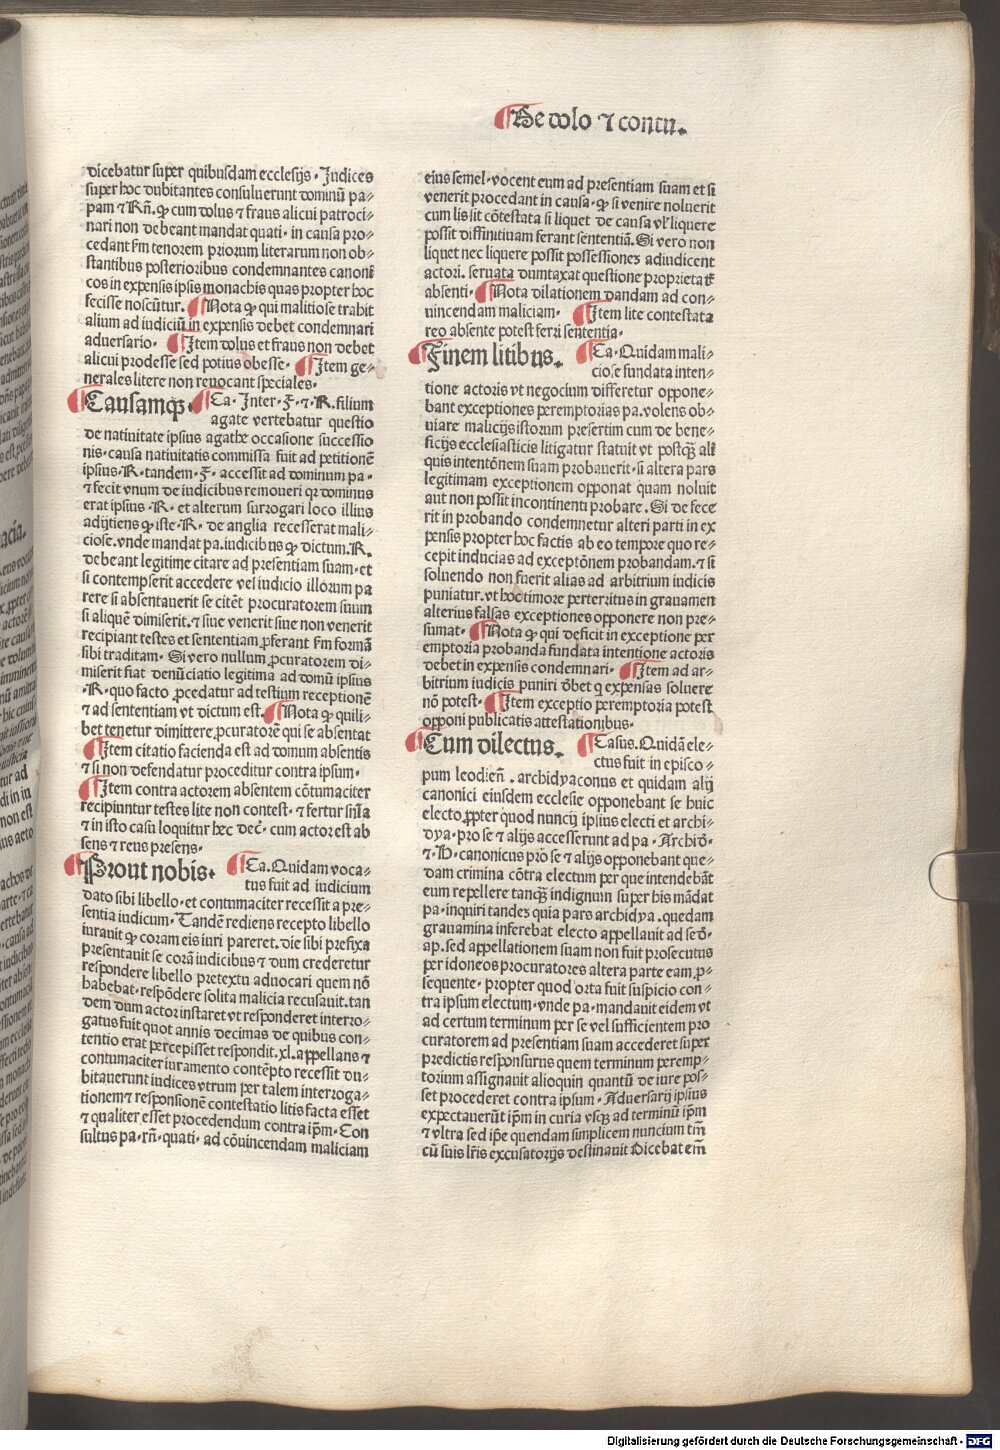 ¶De dolo ⁊ contu.
dicebatur super quibusdam ecclesijs. Judices
super hoc dubitantes consuluerunt dominū pa-
pam ⁊ Rn̄. ꝙ cum dolus ⁊ fraus alicui patroci-
nari non debeant mandat quati. in causa pro-
cedant fm tenorem priorum literarum non ob-
stantibus posterioribus condemnantes canoni
cos in expensis ipsis monachis quas propter hoc
fecisse noscūtur. ¶Nota ꝙ qui malitiose trahit
alium ad iudiciū in expensis debet condemnari
aduersario. ¶Item dolus et fraus non debet
alicui prodesse sed potius obesse. ¶Item ge-
nerales litere non reuocant speciales.
¶Causamqꝫ. ¶Ca. Inter .F. ⁊ .R. filium
agate vertebatur questio
de natiuitate ipsius agathe occasione successio
nis. causa natiuitatis commissa fuit ad petitionē
ipsius .R. tandem .F. accessit ad dominum pa.
⁊ fecit vnum de iudicibus remoueri qꝛ dominus
erat ipsius .R. et alterum surrogari loco illius
adijtiens ꝙ iste .R. de anglia recesserat mali-
ciose. vnde mandat pa. iudicibus ꝙ dictum .R.
debeant legitime citare ad presentiam suam. et
si contempserit accedere vel iudicio illorum pa
rere si absentauerit se citēt procuratorem suum
si aliquē dimiserit. ⁊ siue venerit siue non venerit
recipiant testes et sententiam ꝓferant fm formā
sibi traditam. Si vero nullum ꝓcuratorem di-
miserit fiat denūciatio legitima ad domū ipsius
.R. quo facto ꝓcedatur ad testium receptionē
⁊ ad sententiam vt dictum est. ¶Nota ꝙ quili-
bet tenetur dimittere ꝓcuratorē qui se absentat
¶Item citatio facienda est ad domum absentis
⁊ si non defendatur proceditur contra ipsum.
¶Item contra actorem absentem cōtumaciter
recipiuntur testes lite non contest. ⁊ fertur sn̄ia
⁊ in isto casu loquitur hec dec̄. cum actor est ab
sens ⁊ reus presens.
¶Prout nobis. ¶Ca. Quidam voca-
tus fuit ad iudicium
dato sibi libello. et contumaciter recessit a pre-
sentia iudicum. Tandē rediens recepto libello
iurauit ꝙ coram eis iuri pareret. die sibi prefixa
presentauit se corā iudicibus ⁊ dum crederetur
respondere libello pretextu aduocati quem nō
habebat. respōdere solita malicia recusauit. tan
dem dum actor instaret vt responderet interro-
gatus fuit quot annis decimas de quibus con-
tentio erat percepisset respondit. xl. appellans ⁊
contumaciter iuramento contēpto recessit du-
bitauerunt iudices vtrum per talem interroga-
tionem ⁊ responsionē contestatio litis facta esset
⁊ qualiter esset procedendum contra ip̄m. Con
sultus pa. rn̄. quati. ad cōuincendam maliciam
eius semel. vocent eum ad presentiam suam et si
venerit procedant in causa. ꝙ si venire noluerit
cum lis sit cōtestata si liquet de causa vl̓ liquere
possit diffinitiuam ferant sententiā. Si vero non
liquet nec liquere possit possessiones adiudicent
actori. seruata dumtaxat questione proprietatꝭ
absenti. ¶Nota dilationem dandam ad con-
uincendam maliciam. ¶Item lite contestata
reo absente potest ferri sententia.
¶Finem litibus. ¶Ca. Quidam mali-
ciose fundata inten-
tione actoris vt negocium differetur oppone-
bant exceptiones peremptorias pa. volens ob-
uiare malicijs istorum presertim cum de bene-
ficijs ecclesiasticis litigatur statuit vt postqꝫ ali
quis intentōnem suam probauerit. si altera pars
legitimam exceptionem opponat quam noluit
aut non possit incontinenti probare. Si defece
rit in probando condemnetur alteri parti in ex
pensis propter hoc factis ab eo tempore quo re-
cepit inducias ad exceptōnem probandam. ⁊ si
soluendo non fuerit alias ad arbitrium iudicis
puniatur. vt hoc timore perterritus in grauamen
alterius falsas exceptiones opponere non pre-
sumat. ¶Nota ꝙ qui deficit in exceptione per
emptoria probanda fundata intentione actoris
debet in expensis condemnari. ¶Item ad ar-
bitrium iudicis puniri dȝbet q expensas soluere
nō potest. ¶Item exceptio peremptoria potest
opponi publicatis attestationibus.
¶Cum dilectus. ¶Casus. Quidā ele-
ctus fuit in episco-
pum leodien̄. archidyaconus et quidam alij
canonici eiusdem ecclesie opponebant se huic
electo ꝓpter quod nuncij ipsius electi et archi-
dya. pro se ⁊ alijs accesserunt ad pa. Archid̄.
⁊ .H. canonicus pro se ⁊ alijs opponebant que-
dam crimina cōtra electum per que intendebāt
eum repellere tanqꝫ indignum super his mādat
pa. inquiri tandeȝ quia pars archidya. quedam
grauamina inferebat electo appellauit ad sedȝ.
ap. sed appellationem suam non fuit prosecutus
per idoneos procuratores altera parte eam ꝓ-
sequente. propter quod orta fuit suspicio con-
tra ipsum electum. vnde pa. mandauit eidem vt
ad certum terminum per se vel sufficientem pro
curatorem ad presentiam suam accederet super
predictis responsurus quem terminum peremp-
torium assignauit alioquin quantū de iure pos-
set procederet contra ipsum. Aduersarij ipsius
expectauerūt ip̄m in curia vsqꝫ ad terminū ip̄m
⁊ vltra sed ip̄e quendam simplicem nuncium tm̄
cū suis lr̄is excusatorijs destinauit Dicebat em̄
Digitalisierung gefördert durch die Deutsche Forschungsgemeinschaft - DFG